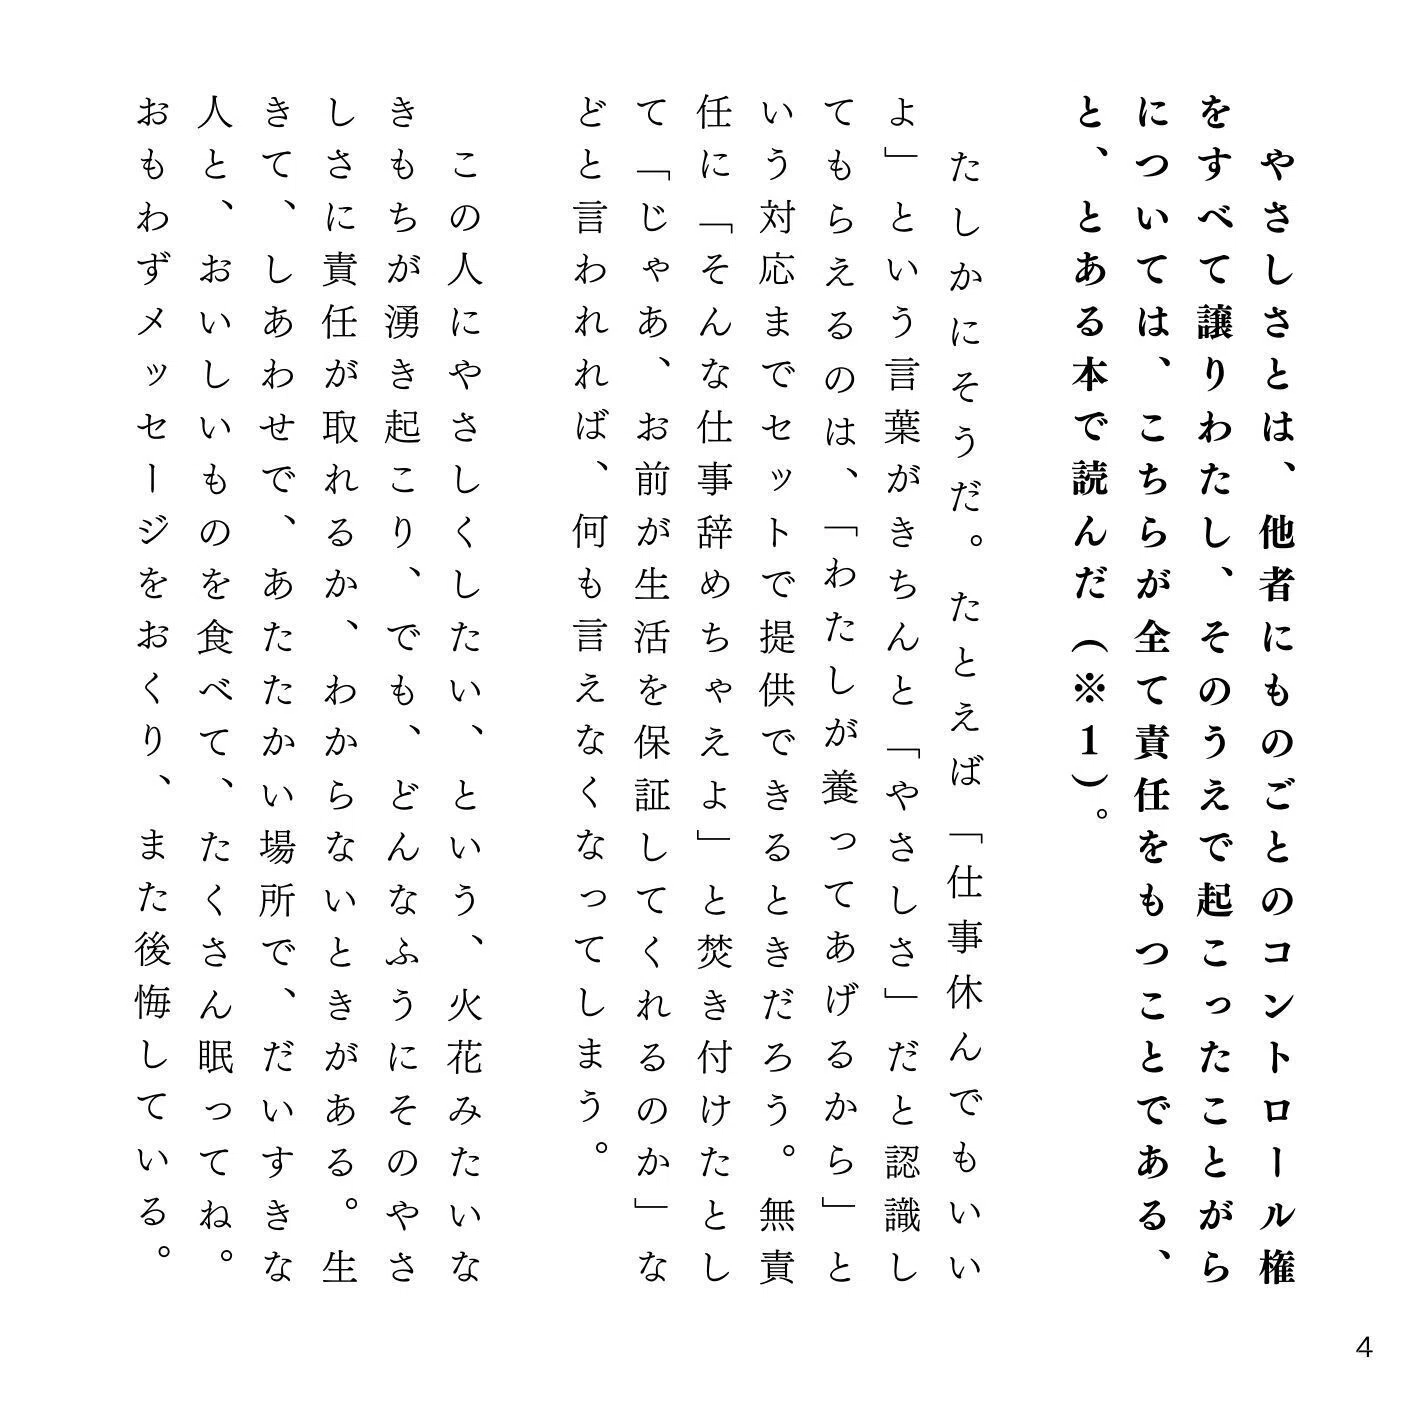 やさしさとは、他者にものごとのコントロール権
をすべて譲りわたし、そのうえで起こったことがら
については、こちらが全て責任をもつことである、
と、とある本で読んだ（※1）。
たしかにそうだ。たとえば「仕事休んでもいい
よ」という言葉がきちんと「やさしさ」だと認識し
てもらえるのは、「わたしが養ってあげるから」と
いう対応までセットで提供できるときだろう。無責
任に「そんな仕事辞めちゃえよ」と焚き付けたとし
て「じゃあ、お前が生活を保証してくれるのか」な
どと言われれば、何も言えなくなってしまう。
この人にやさしくしたい、という、火花みたいな
きもちが湧き起こり、でも、どんなふうにそのやさ
しさに責任が取れるか、わからないときがある。生
きて、しあわせで、あたたかい場所で、だいすきな
人と、おいしいものを食べて、たくさん眠ってね。
おもわずメッセージをおくり、また後悔している。
4